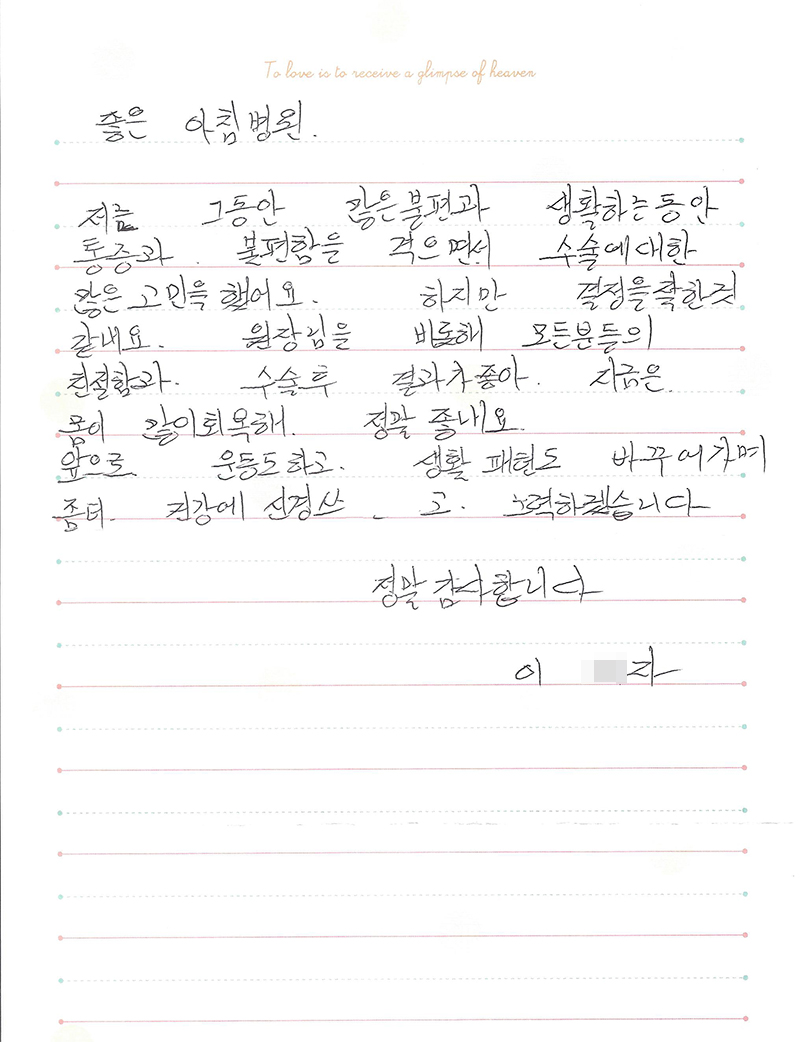 To love is to receive a glimpse of heaven
좋은 아침병원.
저는 그동안 많은불편과 생활하는동안
통증과. 불편함을 격으면서 수술에대한
많은 고민을 했어요. 하지만 결정을 잘한것
같내요. 원장님을 비롭해 모든분들의
친절함과. 수술후 결과가좋아. 지금은.
몸이 많이회복해. 정말 좋내요.
앞으로 운동도하고. 생활 패턴도 바꾸어가며
좀더. 건강에 신경쓰 고. 노력하겠습니다
정말 감사합니다
이 자